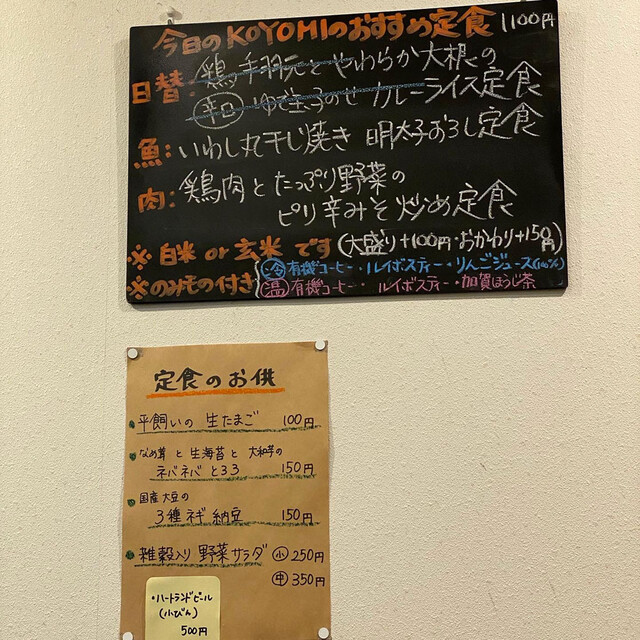 今日のKOYOMIのおすすめ定食 1100円
日替: 鶏手羽元とやわらか大根の
辛口 ゆで玉子のせ カレーライス定食
魚: いわし丸干し焼き 明太子おろし定食
肉: 鶏肉とたっぷり野菜の
ピリ辛みそ炒め定食
※白米 or 玄米 です (大盛り+100円・おかわり+150円)
※のみもの付き 冷 有機コーヒー・ルイボスティー・りんごジュース(100%)
温 有機コーヒー・ルイボスティー・加賀ほうじ茶
定食のお供
・平飼いの 生たまご 100円
・なめ茸と生海苔と大和芋の
ネバネバとろろ 150円
・国産大豆の
3種ネギ納豆 150円
・雑穀入り野菜サラダ 小 250円
中 350円
・ハートランドビール
(小びん)
500円